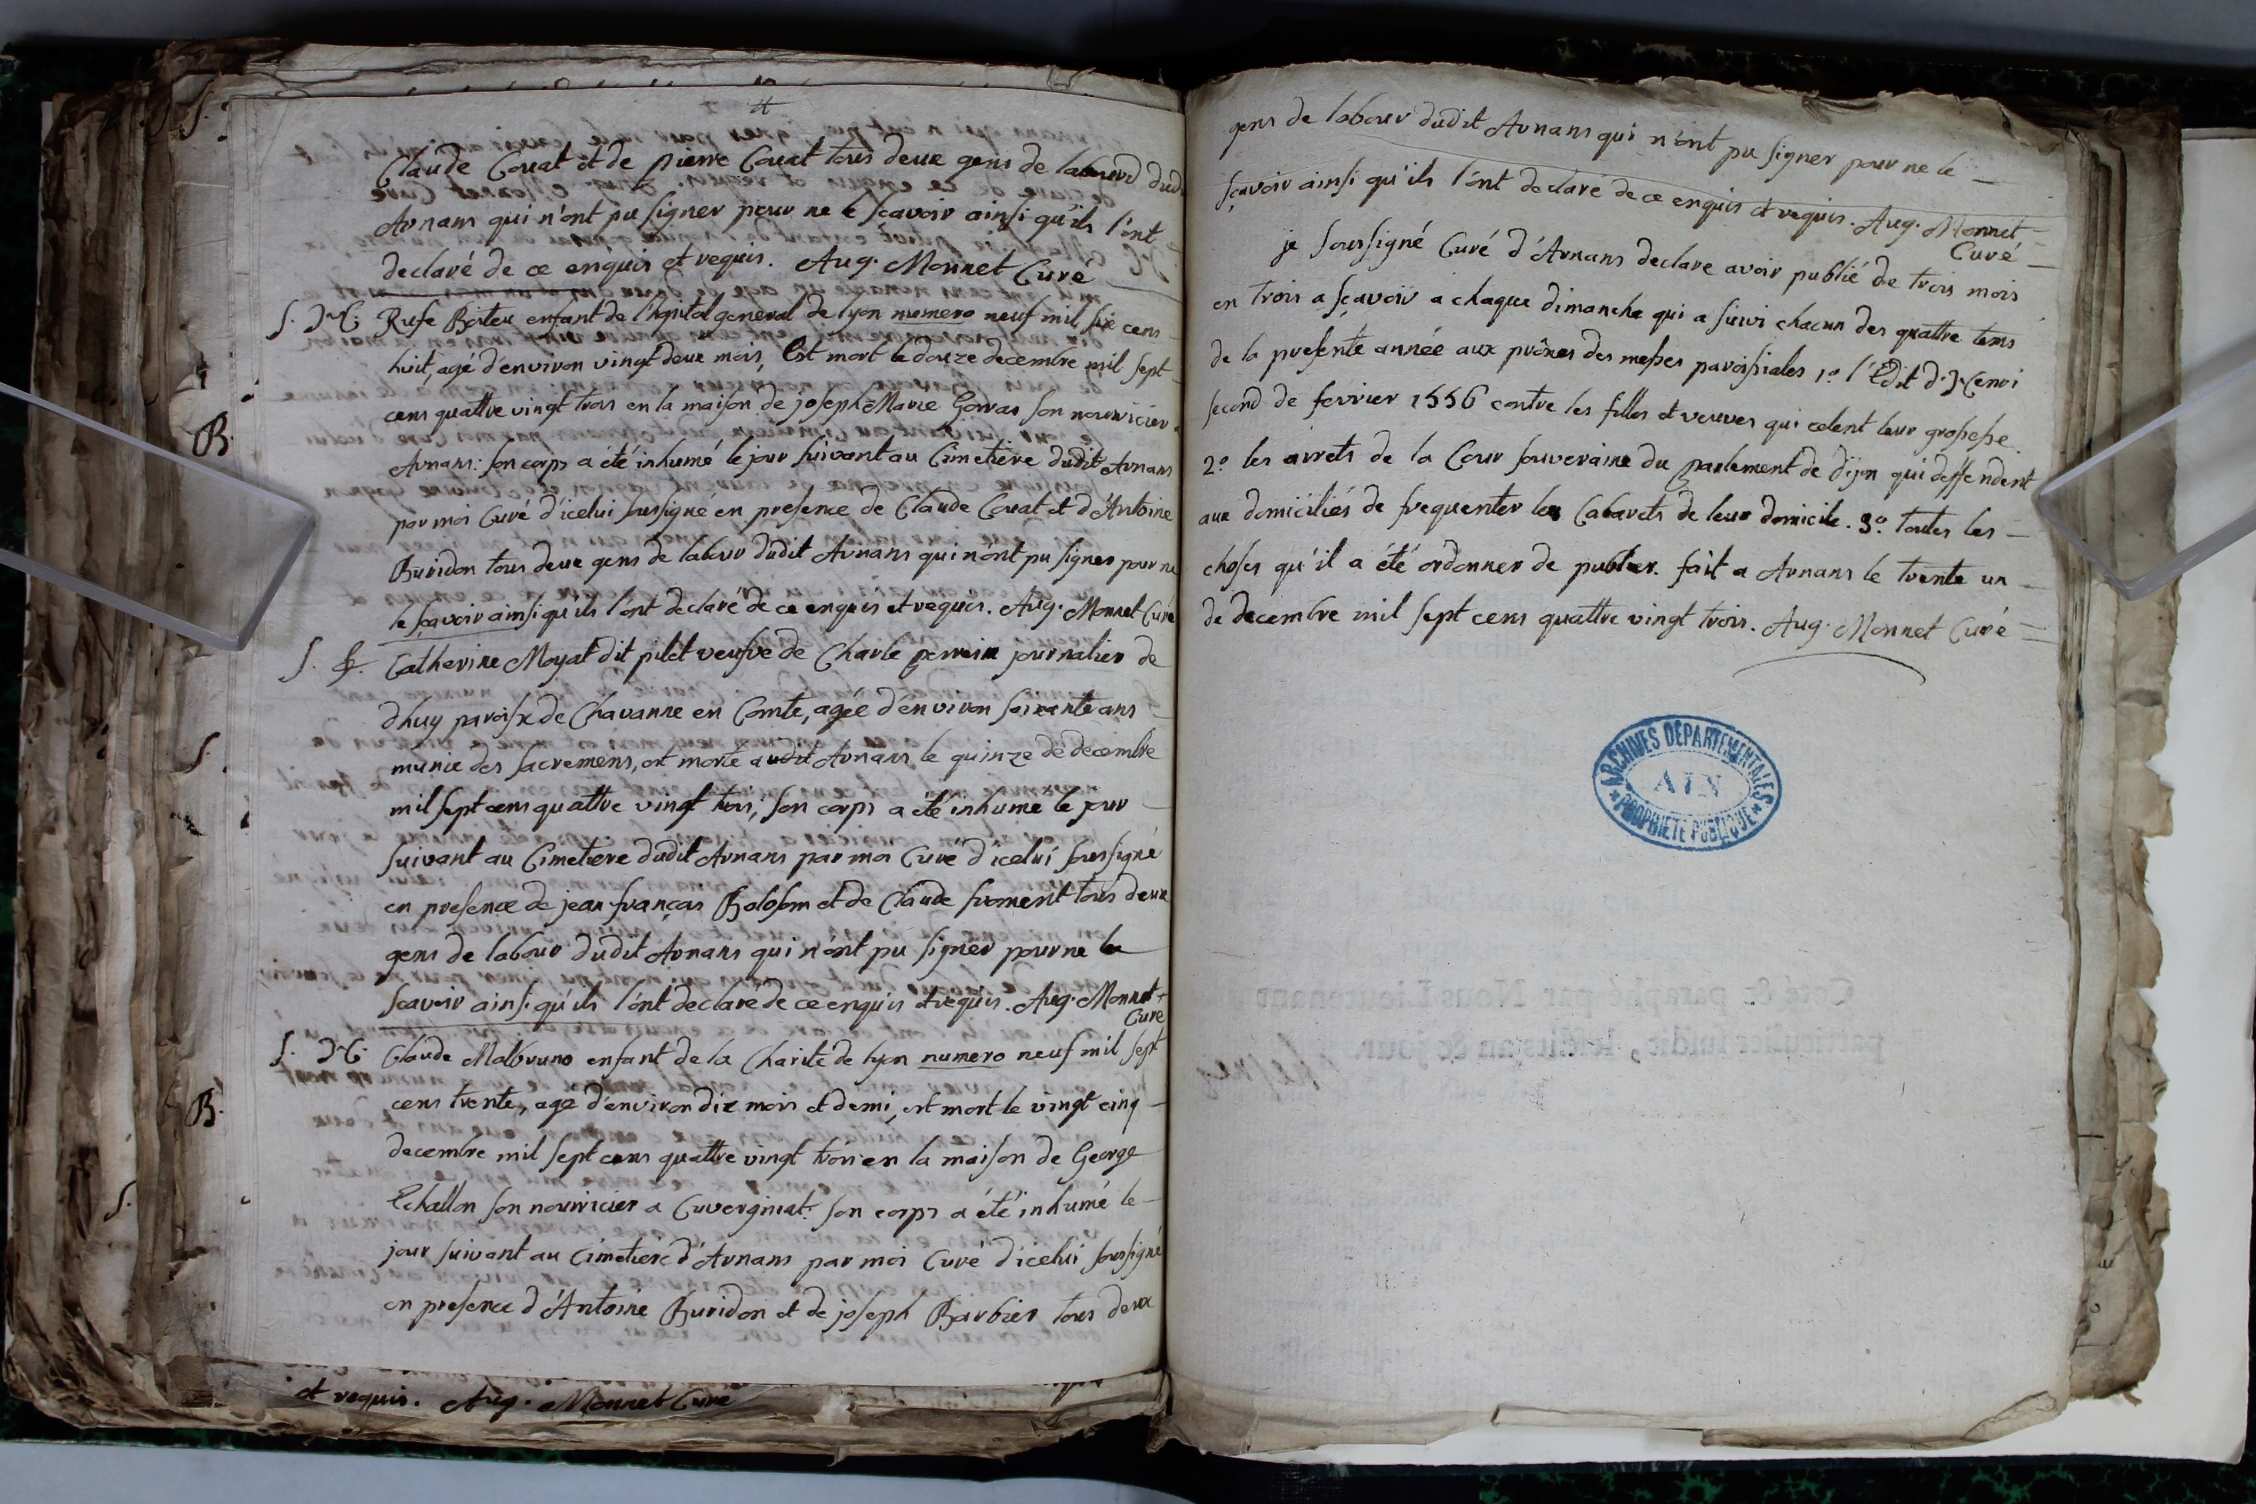 Claude Couat et de pierre Couat tous deux gens de labourd dud.
Arnans qui n'ont pu signer pour ne le sçavoir ainsi qu'ils l'ont
declaré de ce enquis et requis. Aug. Monnet Curé
S. M. Rufe Boiteu enfant de l'hopital general de lyon numero neuf mil six cens
huit, agé d'environ vingt deux mois, Est mort le douze decembre mil sept
cens quattre vingt trois en la maison de joseph Marie Gorras son nourricier a
Arnans: son corps a été inhumé le jour suivant au Cimetiere dudit Arnans
par moi Curé d'icelui soussigné en presence de Claude Couat et d'Antoine
Buridon tous deux gens de labour dudit Arnans qui n'ont pu signer pour ne
le sçavoir ainsi qu'ils l'ont declaré de ce enquis et requis. Aug. Monnet Curé
S. f. Catherine Moyat dit pilet veufve de Charle perrin journalier de
dhuy paroisse de Chavanne en Comte, agée d'environ soixante ans
munie des sacremens, est morte audit Arnans le quinze de decembre
mil sept cens quattre vingt trois; son corps a été inhumé le jour
suivant au Cimetiere dudit Arnans par moi Curé d'icelui soussigné
en presence de jean françois Bolosom et de Claude froment tous deux
gens de labour dudit Arnans qui n'ont pu signer pour ne le
Sçavoir ainsi qu'ils l'ont declaré de ce enquis et requis. Aug. Monnet
Curé
S. M. Claude Malbruno enfant de la Charité de lyon numero neuf mil sept
cens trente, agé d'environ dix mois et demi, est mort le vingt cinq
decembre mil sept cens quattre vingt trois en la maison de George
Echallon son nourricier a Cuvergniat. son corps a été inhumé le
jour suivant au Cimetiere d'Arnans par moi Curé d'icelui soussigné
en presence d'Antoine Buridon et de joseph Barbier tous deux
et requis. Aug. Monnet Curé
B.
S.
B.
S.
gens de labour dudit Arnans qui n'ont pu signer pour ne le
sçavoir ainsi qu'ils l'ont declaré de ce enquis et requis. Aug. Monnet
Curé
je soussigné Curé d'Arnans declare avoir publié de trois mois
en trois a sçavoir a chaque dimanche qui a suivi chacun des quattre tems
de la presente année aux prônes des messes paroissiales 1º l'Edit d'Henri
second de fevrier 1556 contre les filles et veuves qui celent leur grossesse
2º les arrets de la Cour souveraine du parlement de dijon qui deffendent
aux domiciliés de frequenter les Cabarets de leur domicile. 3º toutes les
choses qu'il a été ordonner de publier. fait a Arnans le trente un
de decembre mil sept cens quattre vingt trois. Aug. Monnet Curé
ARCHIVES DÉPARTEMENTALES
AIN
PROPRIÉTÉ PUBLIQUE